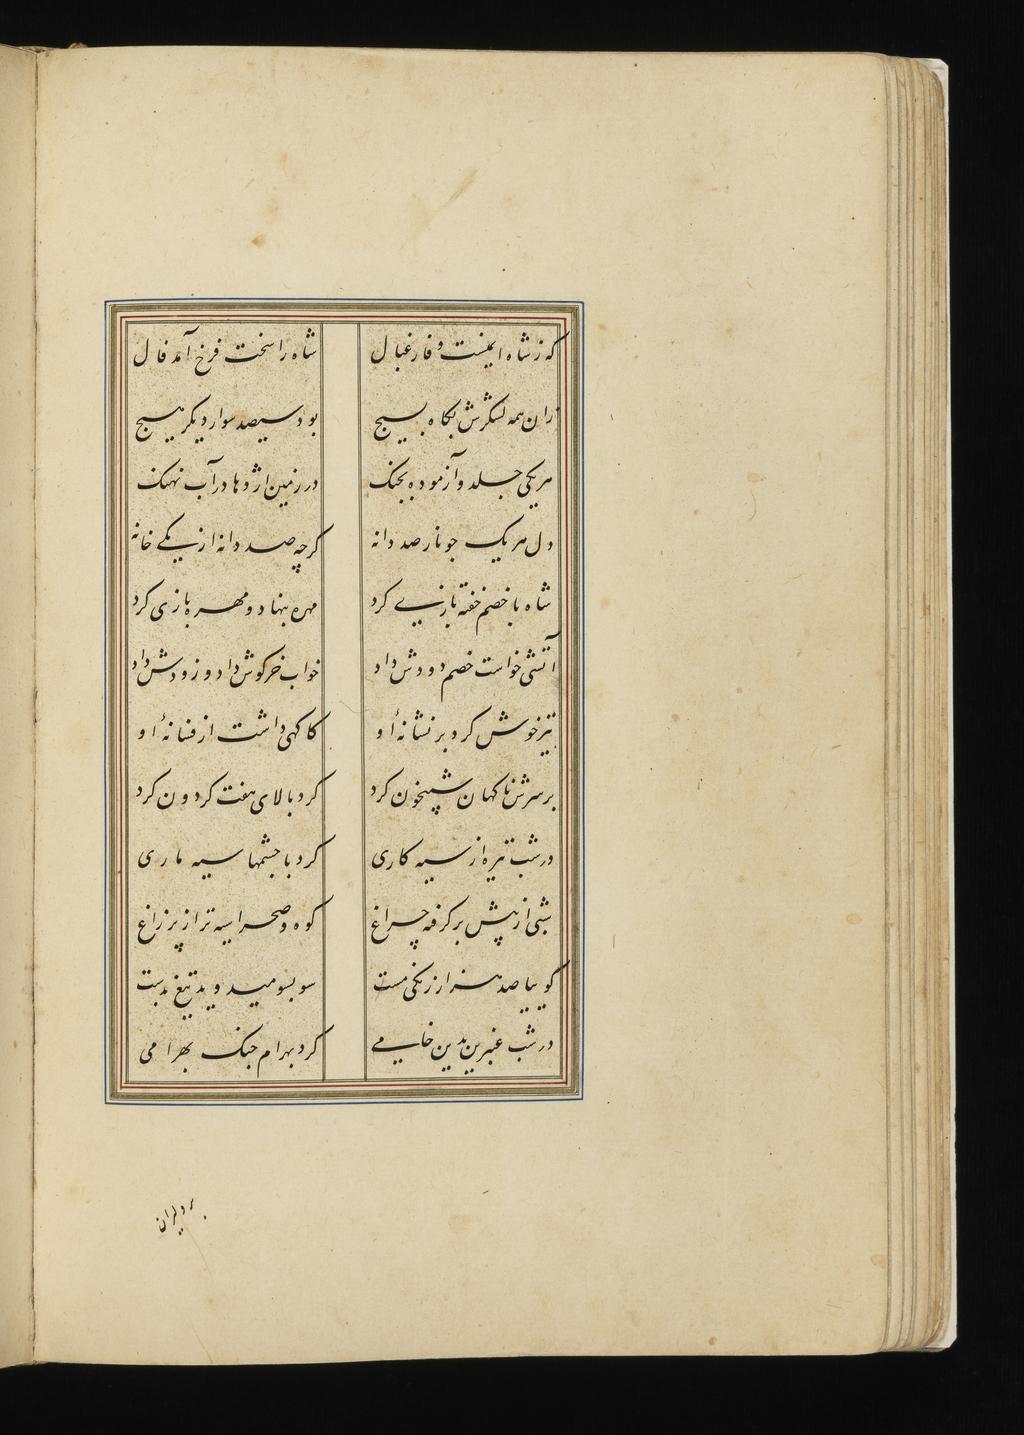 که ز شاه ایمنست و فارغبال شاه را سخت فرخ آمد فال
زان همه لشکرش بکاه بسیج بود سیصد سوار دیگر هیچ
هر یکی جلد و آزموده بجنک در زمین اژدها در آب نهنک
دل هر یک جو نار صد دانه گرچه صد دانه از یکی خانه
شاه با خصم خفته بازی کرد مهره بنهاد و مهره بازی کرد
آتشی خواست خصم دودش داد خواب خرکوش داد و زودش داد
تیر خوش کرد بر نشانهٔ او کاکهی داشت از فسانهٔ او
بر سرش ناکهان شبیخون کرد کرد بالای هفت کردون کرد
در شب تیره از سیه کاری کرد با چشمها سیه ماری
شبی از پیش بر کرفته چراغ کوه و صحرا سیه تر از پر زاغ
کوییا صد هزار زنکی مست سو بسو میدوید تیغ بدست
در شب عنبرین بدین خامی کرد بهرام جنک بهرامی
بر دلیران